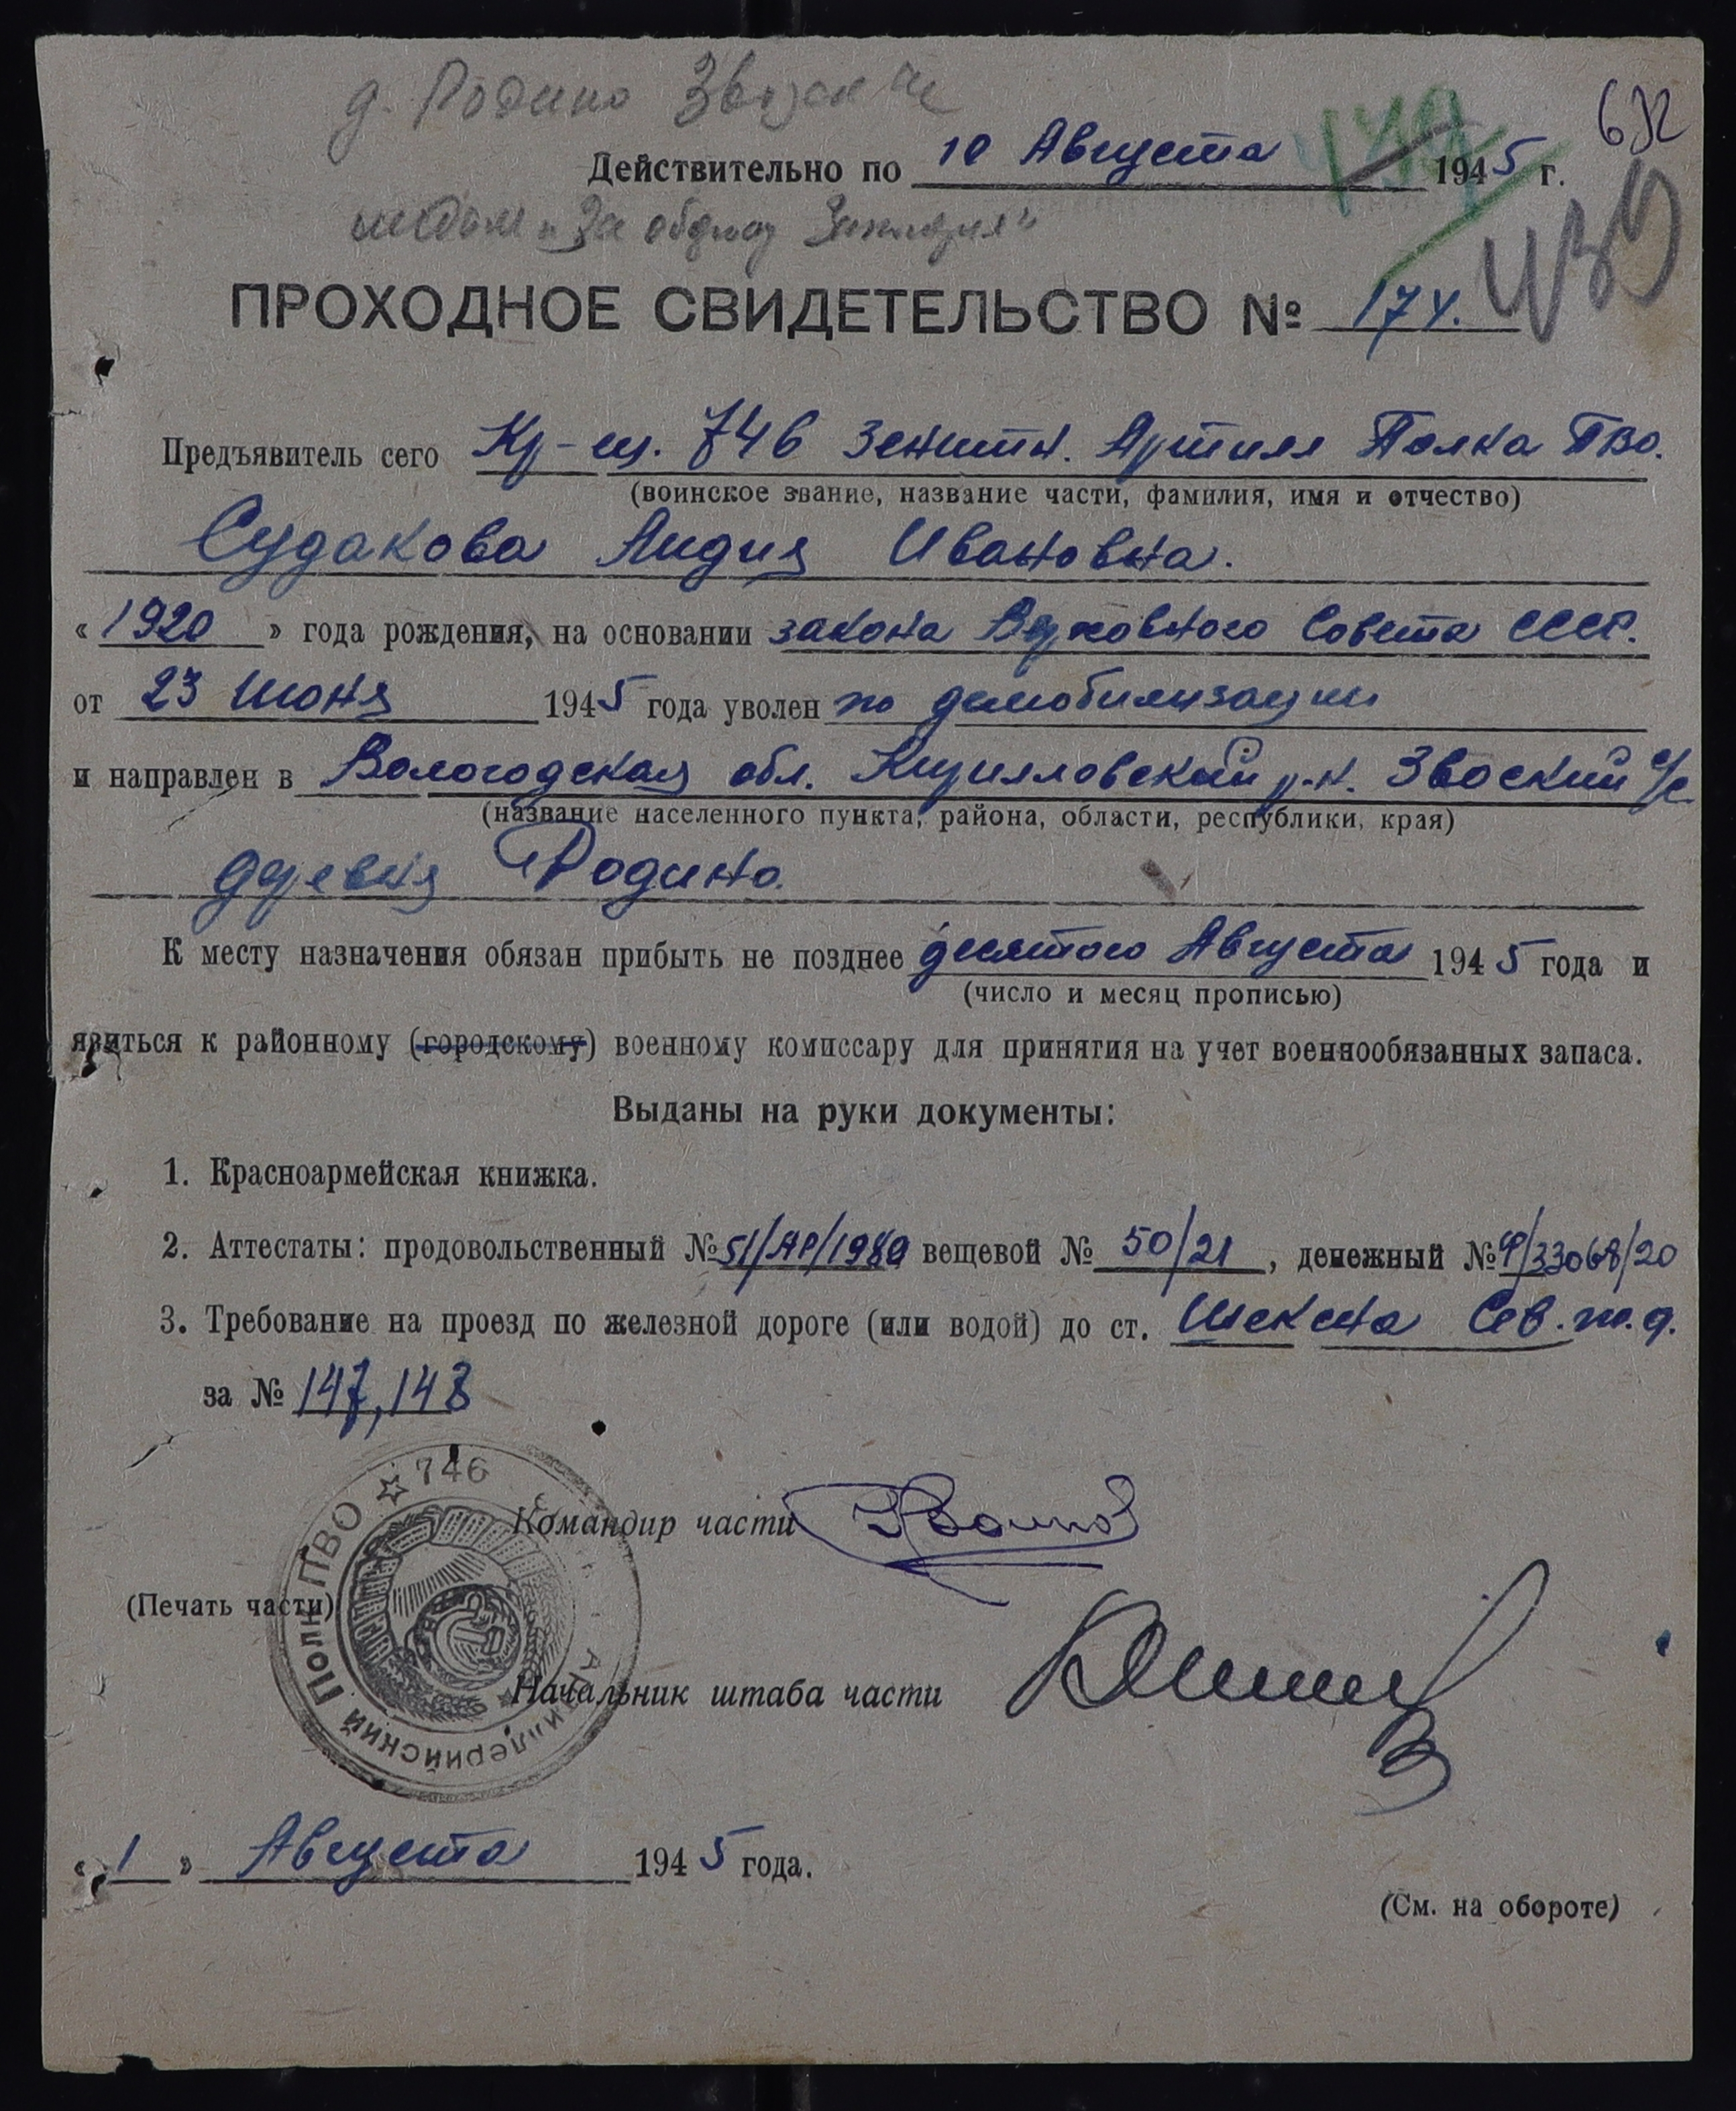 д. Родино
632
Действительно по 10 Августа 1945 г.
медаль "За оборону
ПРОХОДНОЕ СВИДЕТЕЛЬСТВО № 174.
Предъявитель сего Кр-ец. 746 зенитн. Артилл Полка ПВО.
(воинское звание, название части, фамилия, имя и отчество)
Судакова Лидия Ивановна.
« 1920 » года рождения, на основании закона Верховного Совета СССР.
от 23 Июня 1945 года уволен по демобилизации
и направлен в Вологодская обл. Кирилловский р-н. Звоский с/с
(название населенного пункта, района, области, республики, края)
деревня Родино.
К месту назначения обязан прибыть не позднее десятого Августа 1945 года и
(число и месяц прописью)
явиться к районному (городскому) военному комиссару для принятия на учет военнообязанных запаса.
Выданы на руки документы:
1. Красноармейская книжка.
2. Аттестаты: продовольственный № вещевой № 50/21, денежный №
3. Требование на проезд по железной дороге (или водой) до ст. Шексна Сев. ж. д.
за № 147, 148
746
Артиллерийский Полк ПВО
Командир части
(Печать части)
Начальник штаба части
« 1 » Августа 1945 года.
(См. на обороте)